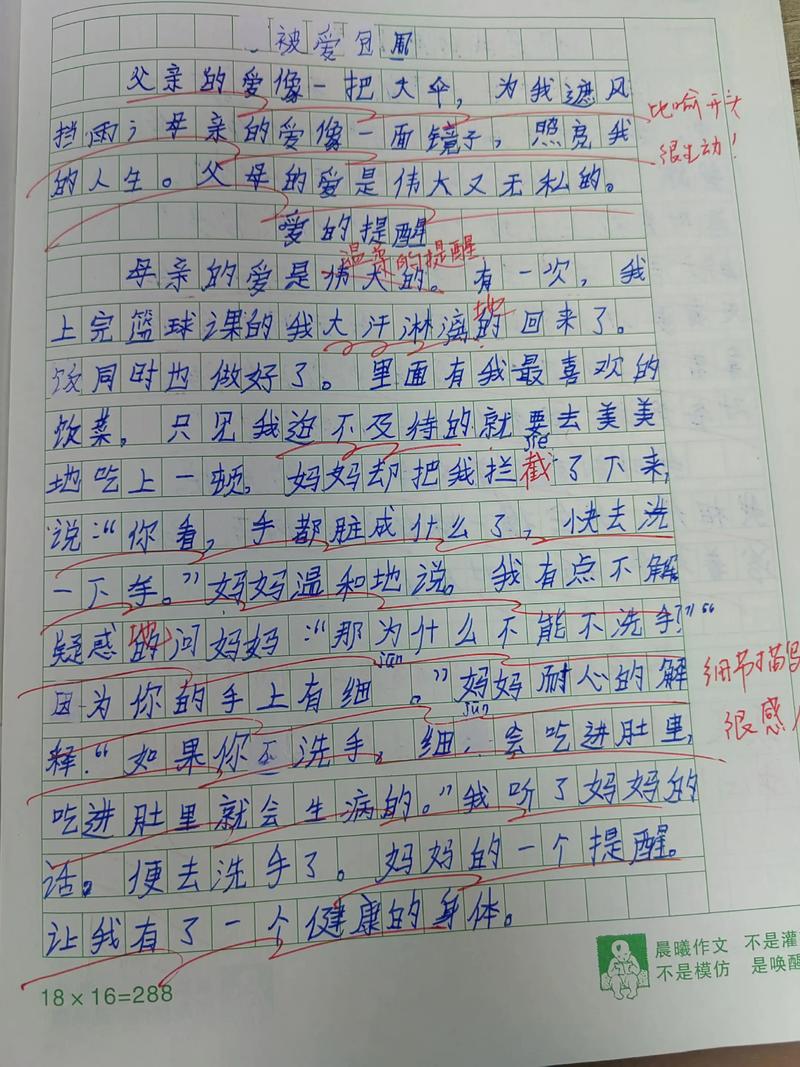 被爱包围
父亲的爱像一把大伞，为我遮风
挡雨；母亲的爱像一面镜子，照亮我
的人生。父母的爱是伟大又无私的。
比喻开头
很生动！
爱的提醒
温柔的提醒
母亲的爱是伟大的。有一次，我
地
上完篮球课的我大汗淋漓的回来了。
饭同时也做好了。里面有我最喜欢的
饮菜，只见我迫不及待的就要去美美
jié
地吃上一顿，妈妈却把我拦截了下来，
说：“你看，手都脏成什么了，快去洗
一下手。”妈妈温和地说。我有点不解
地
疑惑的问妈妈：“那为什么不能不洗手？”“
jūn
因为你的手上有细 。”妈妈耐心的解
细节描写
很感
jūn
释：“如果你不洗手，细 会吃进肚里，
吃进肚里就会生病的。”我听了妈妈的
话。便去洗手了。妈妈的一个提醒。
让我有了一个健康的身体。
18×16=288
晨曦作文 不是灌
不是模仿 是唤醒